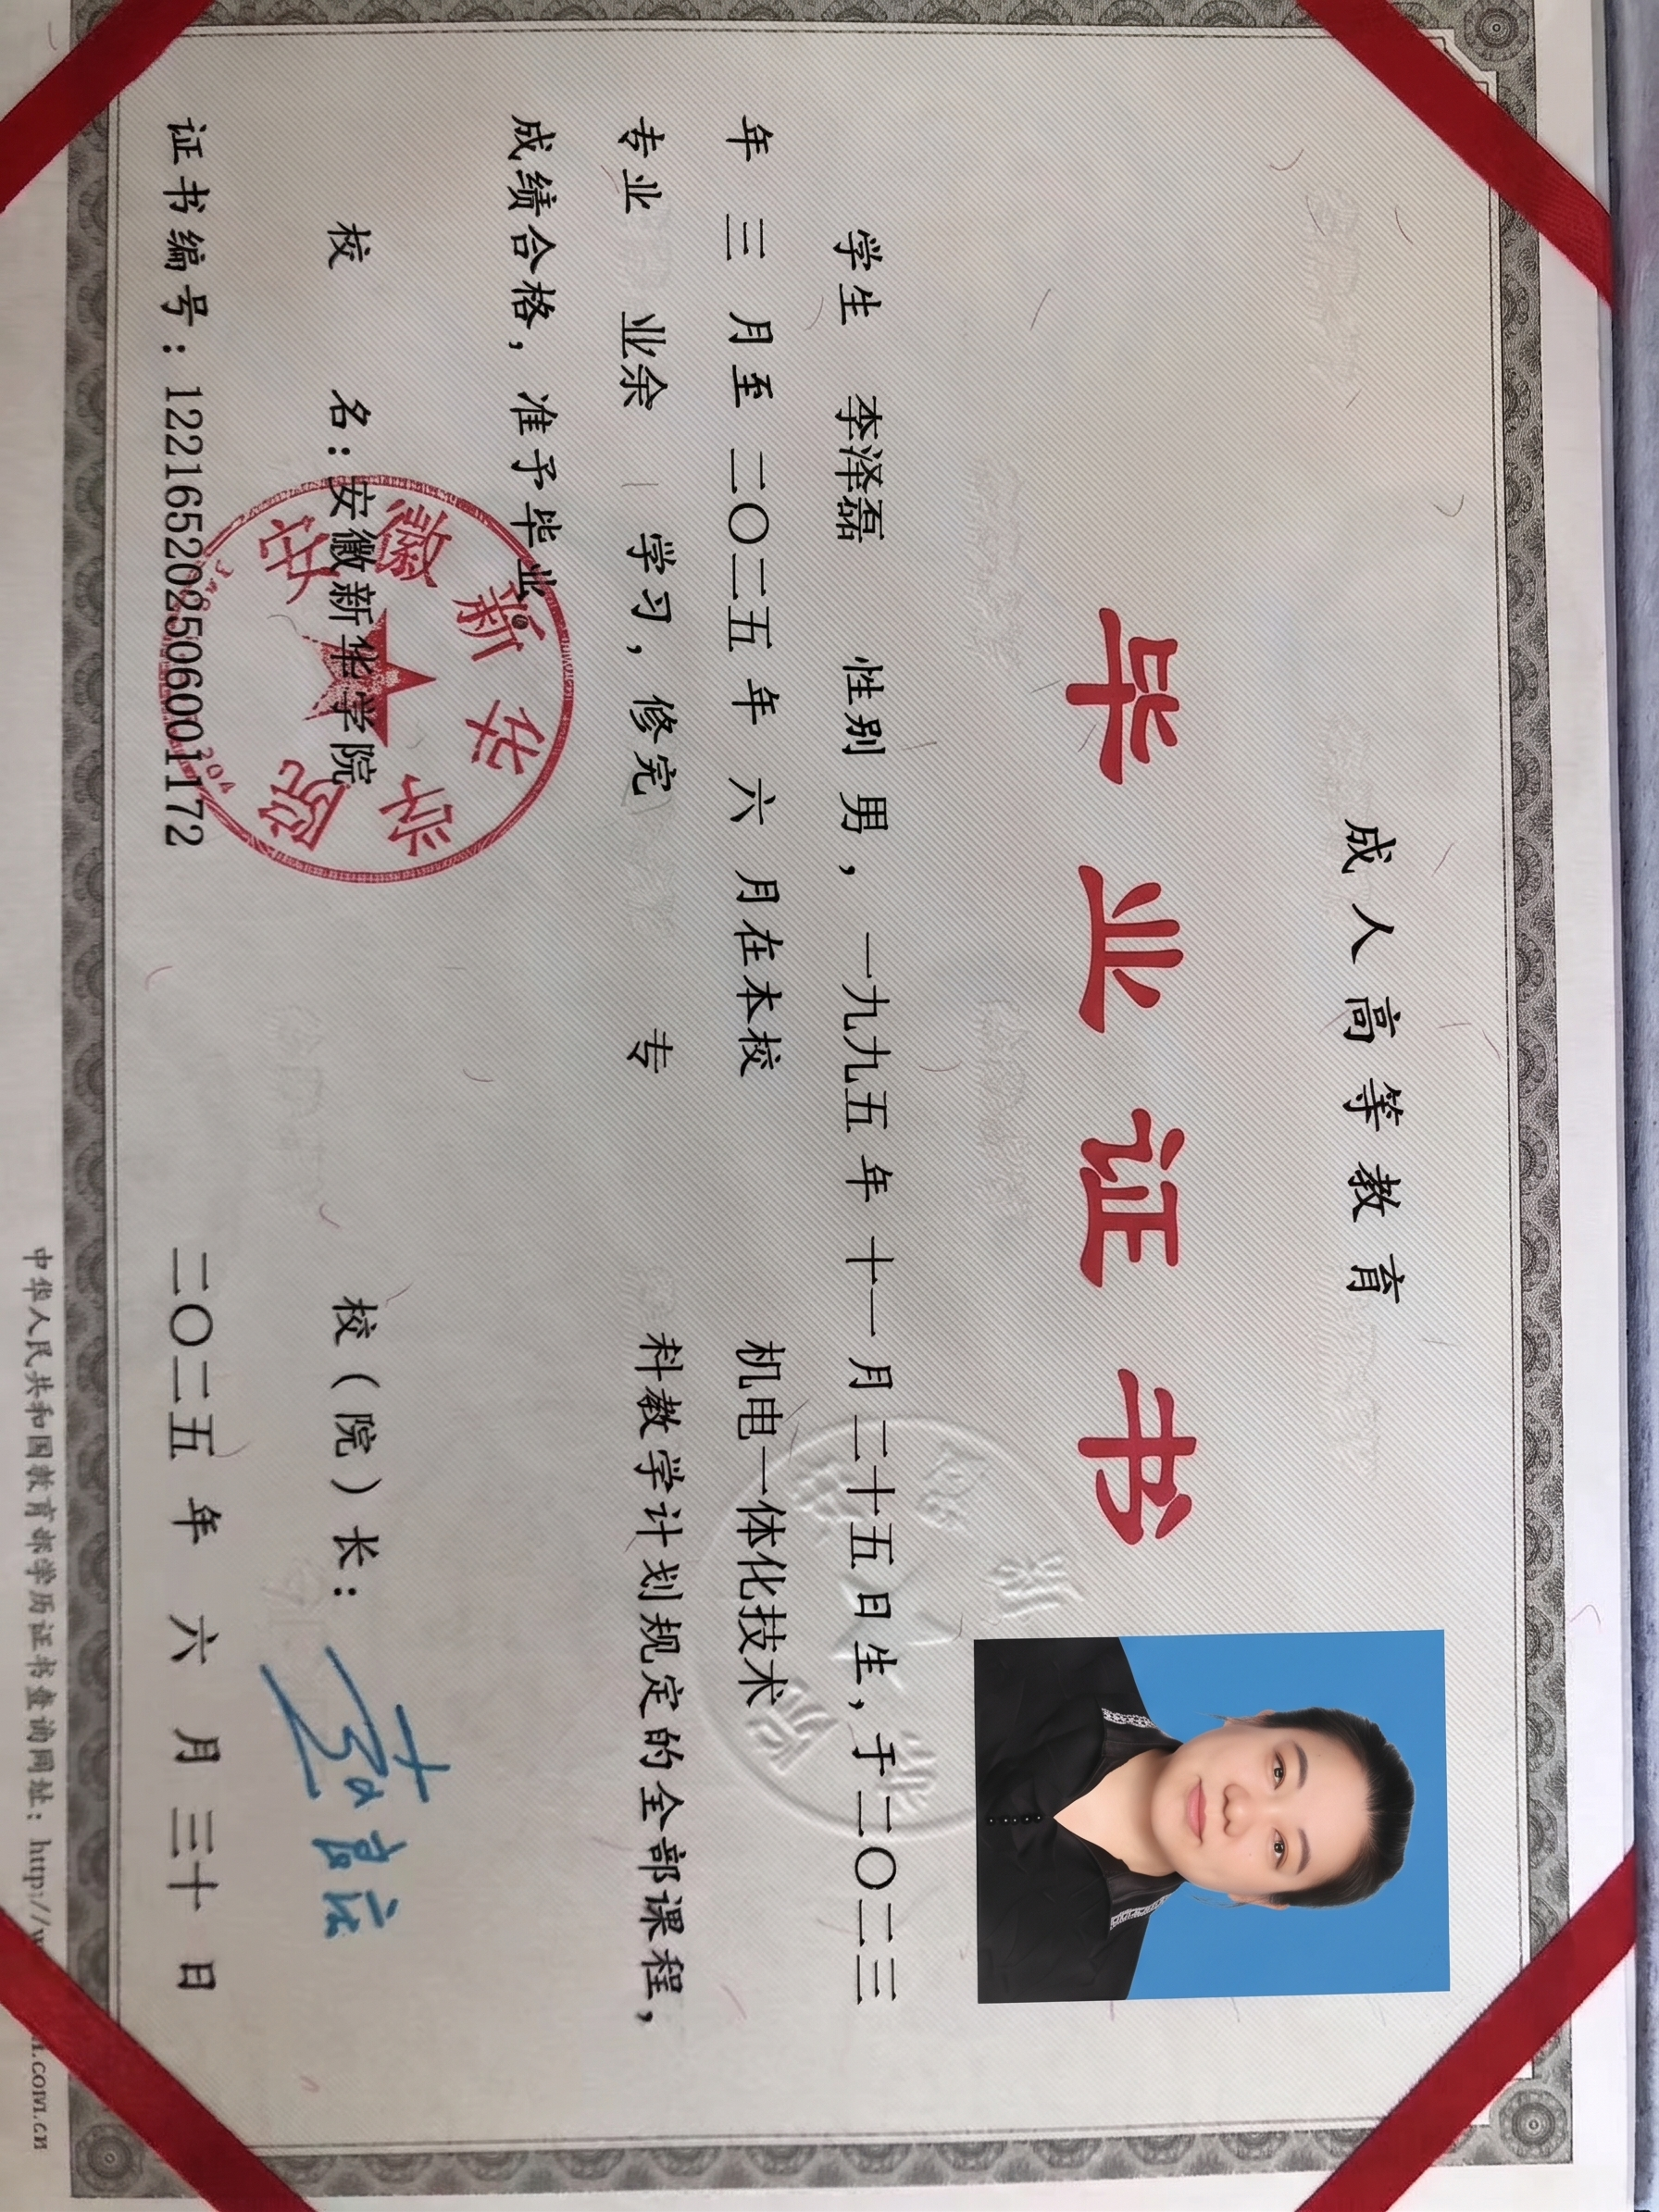 成人高等教育
毕业证书
学生 李泽磊 性别 男，一九九五年 十一 月 二十五日生，于二〇二三
年 三 月至 二〇二五 年 六 月在本校 机电一体化技术
专业 业余 学习，修完 专 科教学计划规定的全部课程，
成绩合格，准予毕业。
校 名：安徽新华学院 校（院）长：
证书编号：122165202506001172 二〇二五 年 六 月 三十 日
中华人民共和国教育部学历证书查询网址：http://w
安徽新华学院